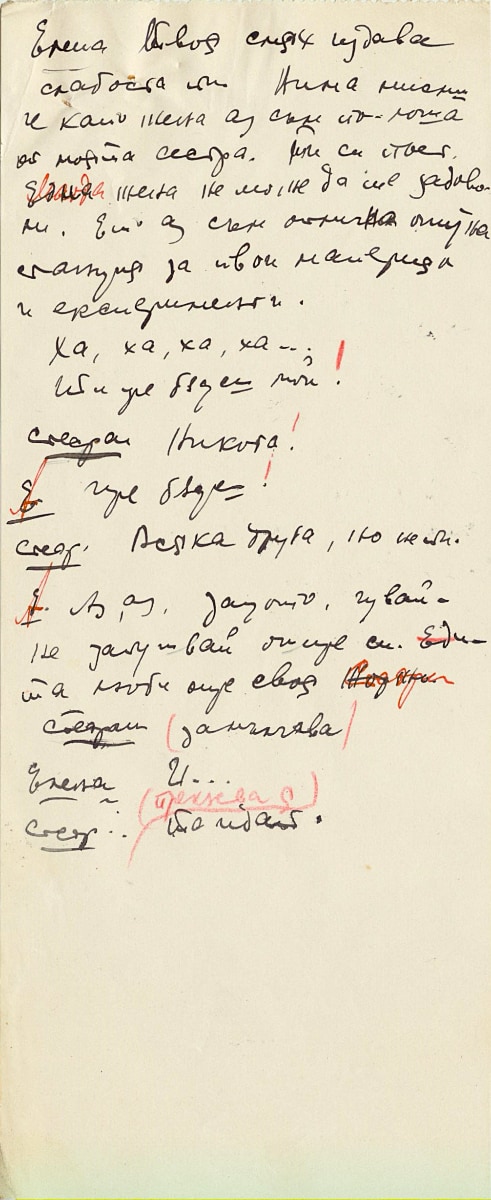 Елена Твоя смях издава
слабостта ти Нима мислиш
че като жена аз съм по-лоша
от моята сестра. Ти си поет.
жена не може да те задово-
ли. Ето аз съм отлична опитна
станция за твои материали
и експерименти.
Ха, ха, ха, ха...
Ти ще бъдеш мой!
Стефан Никога!
Е ще бъдеш!
Стеф. Всяка друга, но не ти.
Е. Аз, аз, защото, чувай-
не запушвай ушите си. Еди-
та люби още своя
Стефан (замълчава)
Елена И...
(прекъсва я)
Стеф. : Та идат.